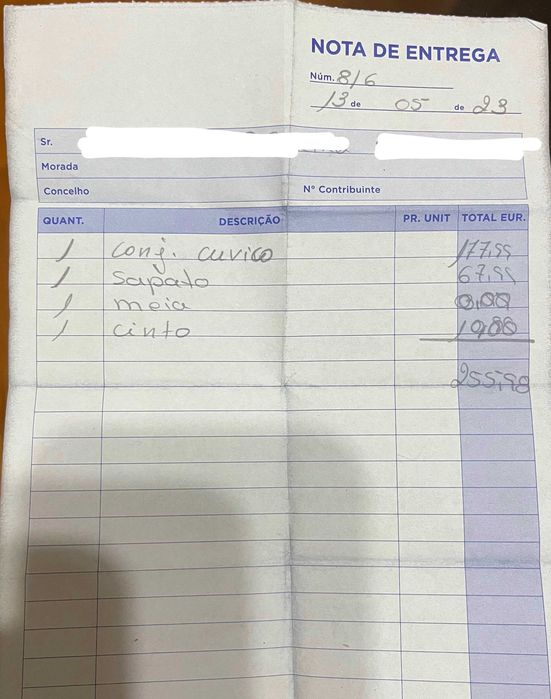 NOTA DE ENTREGA
Núm. 816
13 de 05 de 23
Sr.
Morada
Concelho Nº Contribuinte
QUANT. DESCRIÇÃO PR. UNIT TOTAL EUR.
1 conj. cuvico 177,99
1 sapato 67,99
1 meia 0,00
1 cinto 10,00
255,98